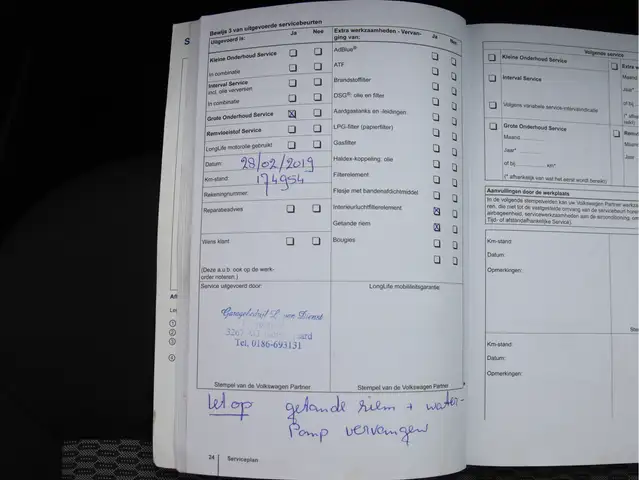 S
Bewijs 3 van uitgevoerde servicebeurten
Uitgevoerd is:
Ja Nee
Kleine Onderhoud Service
in combinatie
Interval Service
incl. olie verversen
in combinatie
Grote Onderhoud Service
Remvloeistof Service
LongLife motorolie gebruikt
Datum: 28/02/2019
Km-stand: 174954
Rekeningnummer:
Reparatieadvies
Wens klant
(Deze a.u.b. ook op de werk-
order noteren.)
Service uitgevoerd door:
Garagebedrijf L. van Dienst
Tel. 0186-693131
Stempel van de Volkswagen Partner
Extra werkzaamheden - Vervan-
ging van:
Ja Nee
AdBlue®
ATF
Brandstoffilter
DSG®: olie en filter
Aardgastanks en -leidingen
LPG-filter (papierfilter)
Gasfilter
Haldex-koppeling: olie
Filterelement
Flesje met bandenafdichtmiddel
Interieurluchtfilterelement
Getande riem
Bougies
LongLife mobiliteitsgarantie:
Stempel van de Volkswagen Partner
Let op getande riem + water-
Pomp vervangen
24 Serviceplan
Volgende service
Kleine Onderhoud Service
Interval Service
Volgens variabele service-intervalindicatie
Grote Onderhoud Service
Maand
Jaar*
of bij km*
(* afhankelijk van wat het eerst wordt bereikt)
Extra w
Maand
Jaar*
of bij
(* afha
bereik
Remvl
Maand
Jaar
Aanvullingen door de werkplaats
In de volgende stempelvelden kan uw Volkswagen Partner werkza
ren, die niet tot de vastgestelde omvang van de servicebeurt
Tijd- of afstandafhankelijke Service).
Km-stand:
Datum:
Opmerkingen:
Km-stand:
Datum:
Opmerkingen: